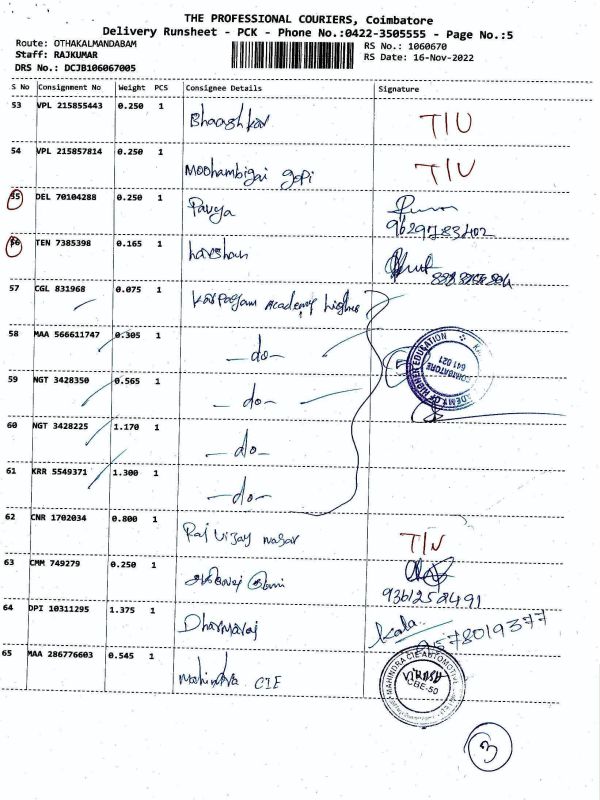 THE PROFESSIONAL COURIERS, Coimbatore
Delivery Runsheet - PCK - Phone No.:0422-3505555 - Page No.:5
Route: OTHAKALMANDABAM RS No.: 1060670
Staff: RAJKUMAR RS Date: 16-Nov-2022
DRS No.: DCJB106067005
S No Consignment No Weight PCS Consignee Details Signature
53 VPL 215855443 0.250 1 Bhaashkar T/U
54 VPL 215857814 0.250 1 Moohambigai gopi T/U
55 DEL 70104288 0.250 1 Pavya
56 TEN 7385398 0.165 1
57 CGL 831968 0.075 1 Karpagam Academy higher
58 MAA 566611747 0.305 1 -do-
59 NGT 3428350 0.565 1 -do-
60 NGT 3428225 1.170 1 -do-
61 KRR 5549371 1.300 1 -do-
OF HIGHER EDUCATION
COIMBATORE
641 021
62 CNR 1702034 0.800 1 Raj Vijay nagar
63 CMM 749279 0.250 1
9361252491
64 DPI 10311295 1.375 1 Dharmaraj Kala
65 MAA 286776603 0.545 1 Mahindra CIE
MAHINDRA CIE AUTOMOTIVE
CBE-50
3